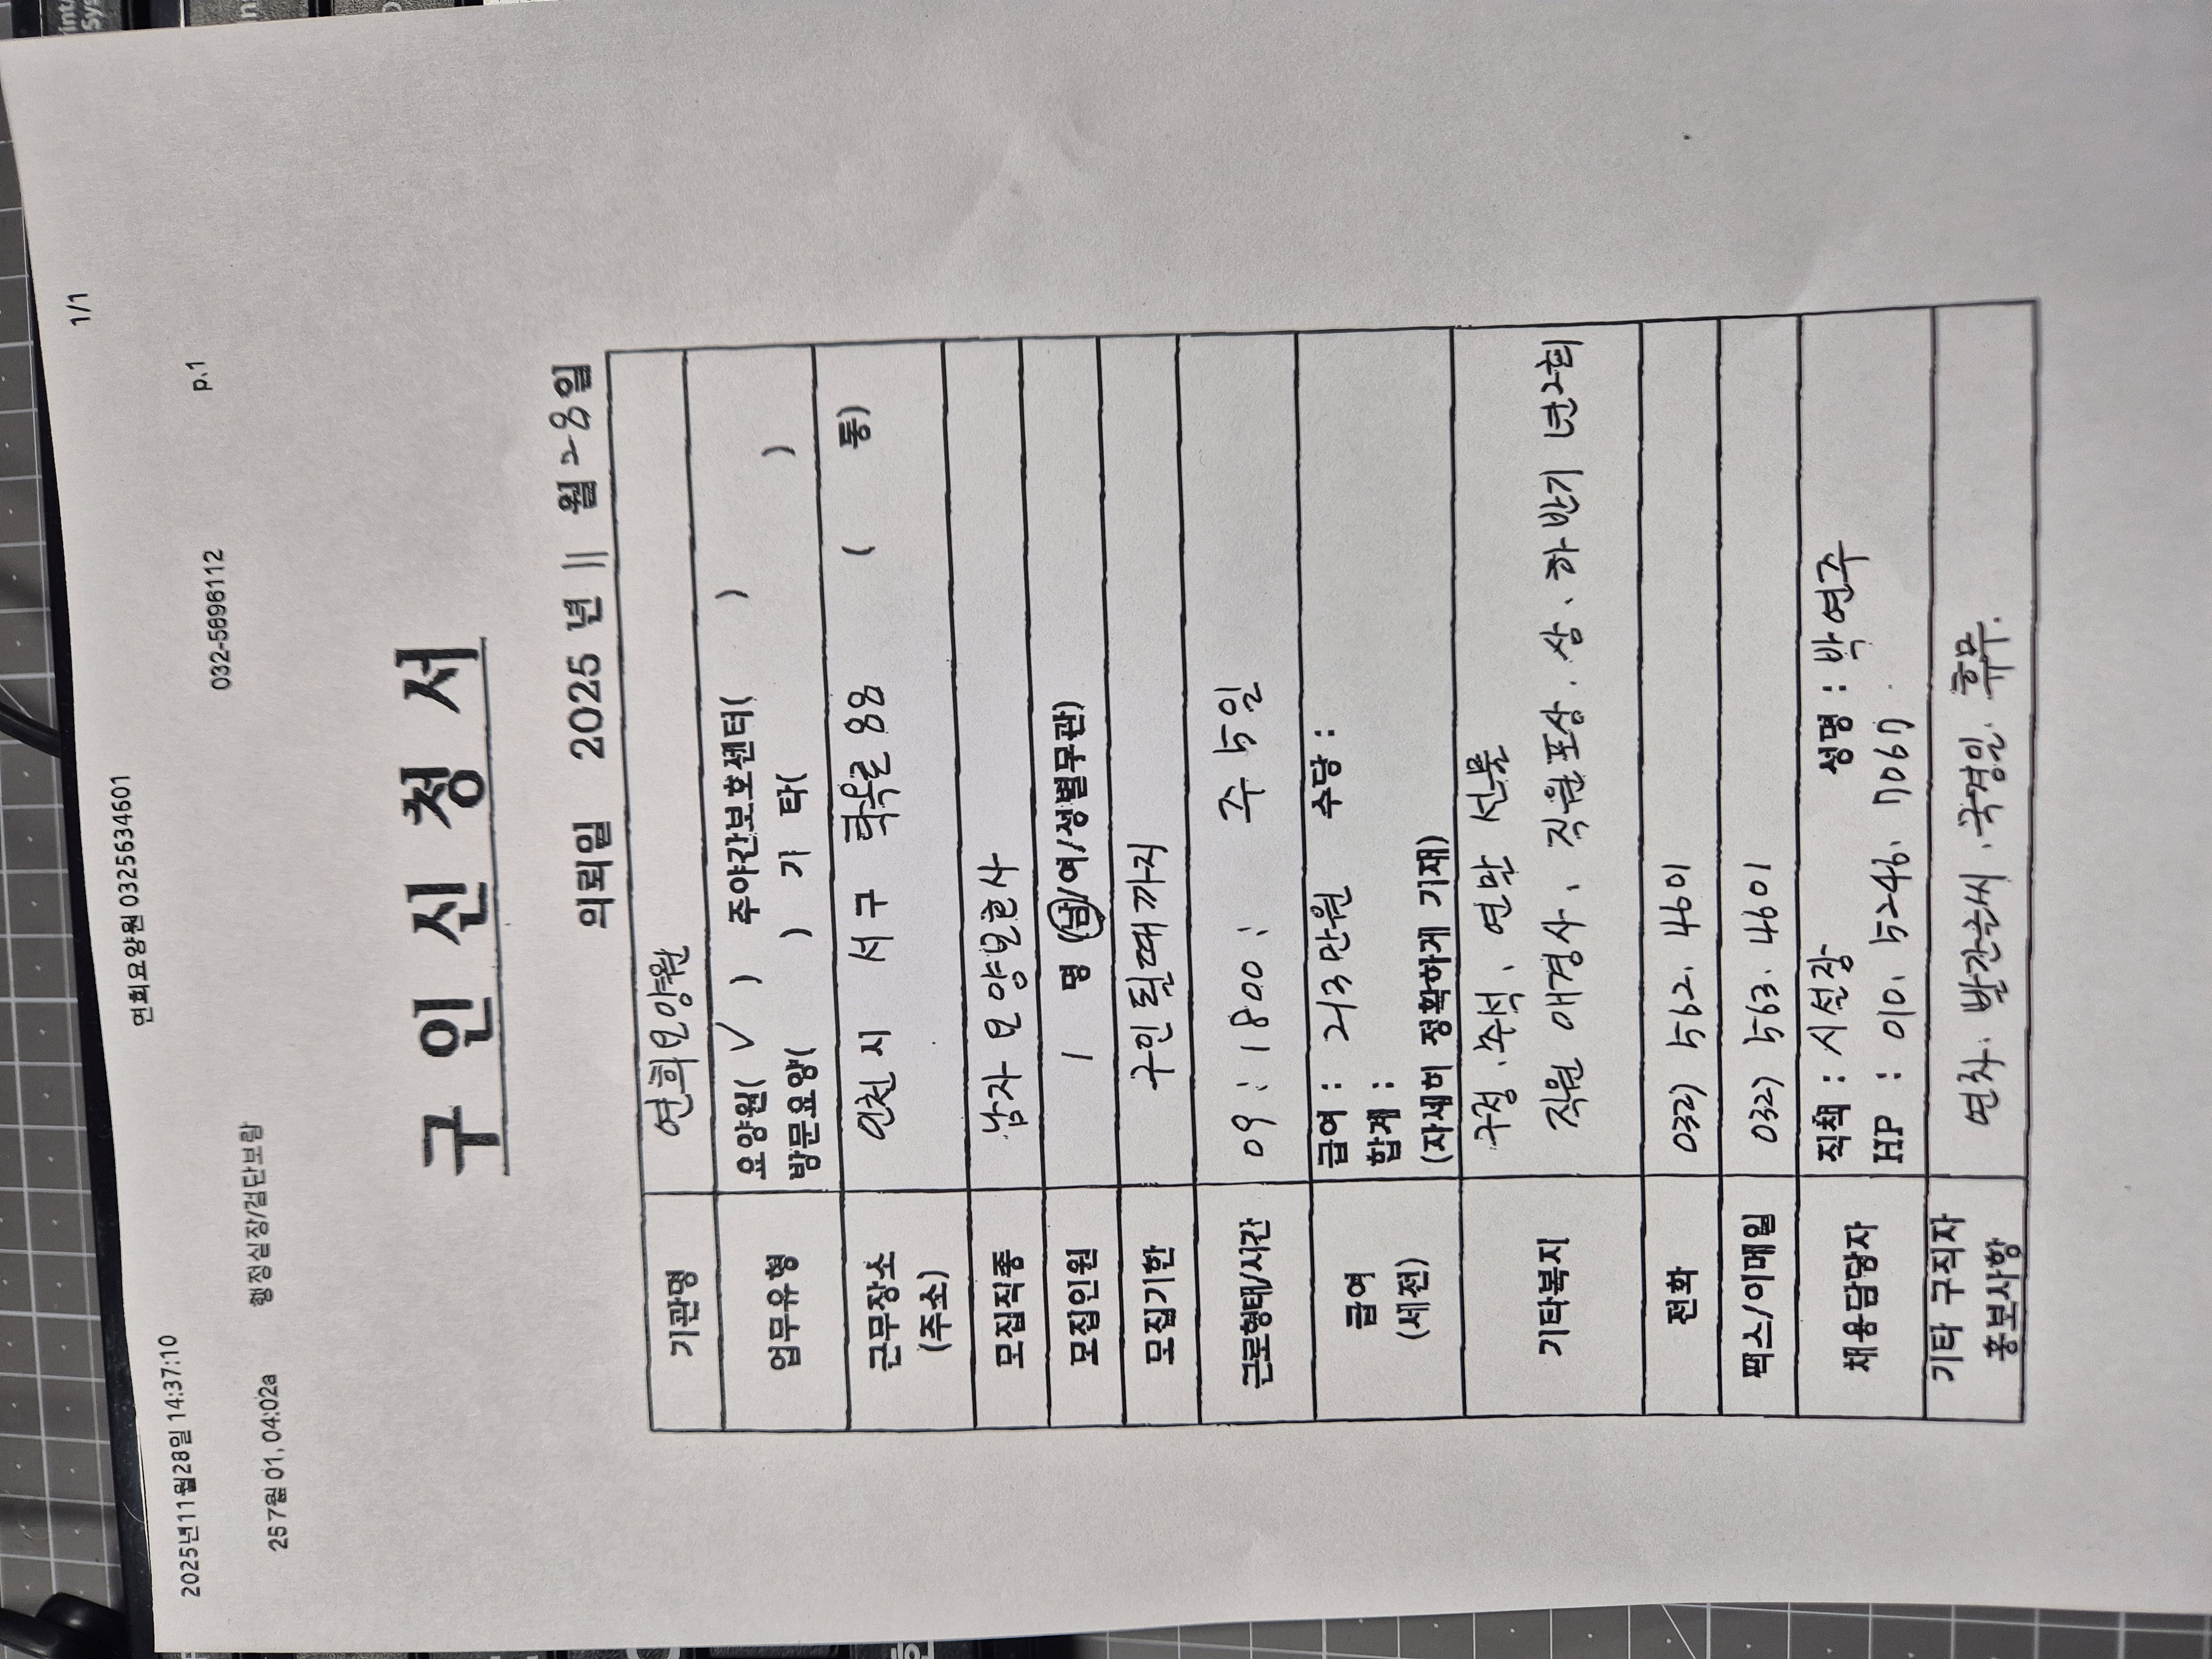 1/1
2025년11월28일 14:37:10 연희요양원 0325634601
p.1
25 7월 01, 04:02a 행정실장/검단보람 032-5696112
구 인 신 청 서
의뢰일 2025 년 11 월 28일
기관명 연희요양원
업무유형 요양원( √ ) 주야간보호센터( )
방문요양( ) 기 타( )
근무장소 (주소) 인천시 서구 탁옥로 88 ( 동)
모집직종 남자 요양보호사
모집인원 1 명 (남/여/성별무관)
모집기한 구인 될때까지
근로형태/시간 09 : 1800 : 주 5일
급여 (세전) 급여 : 213만원 수당 :
합계 :
(자세히 정확하게 기재)
기타복지 구정 . 추석 . 연말 선물
직원 애경사 . 직원포상 . 상 . 하반기 년2회
전화 032) 562. 4601
팩스/이메일 032) 563. 4601
채용담당자 직책 : 시설장 성명 : 박연주
HP : 010. 5246. 7067 .
기타 구직자 홍보사항 연차 . 빨간글씨 . 국경일. 휴무.
Sys